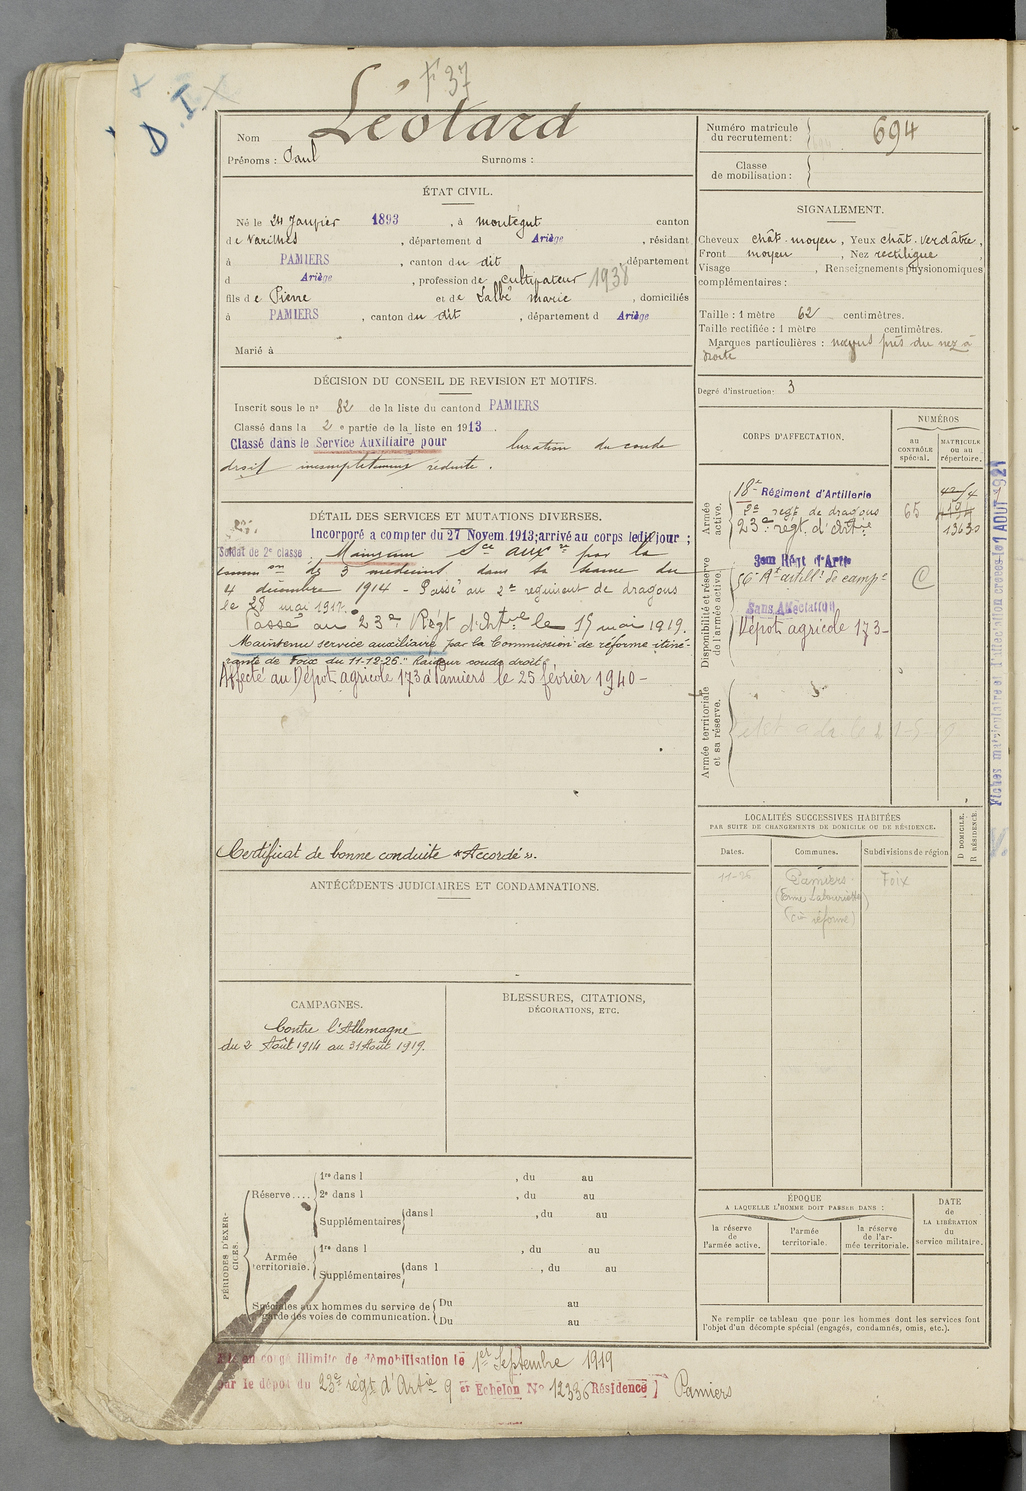 F 37
D
Nom Léotard
Prénoms : Paul Surnoms :
ÉTAT CIVIL.
Né le 24 Janvier 1893, à montégut canton
de Varilhes, département d Ariège, résidant
à PAMIERS, canton du dit, département
d Ariège, profession de cultivateur 1938
fils de Pierre et de Salbé marie, domiciliés
à PAMIERS, canton du dit, département d Ariège
Marié à
DÉCISION DU CONSEIL DE REVISION ET MOTIFS.
Inscrit sous le n° 82 de la liste du canton d PAMIERS
Classé dans la 2e partie de la liste en 1913.
Classé dans le Service Auxiliaire pour luxation du coude
droit incomplètement réduite.
DÉTAIL DES SERVICES ET MUTATIONS DIVERSES.
Incorporé a compter du 27 Novem. 1913; arrivé au corps ledit jour ;
Soldat de 2e classe. Maintenu Sce auxre par la
common de 3 médecins dans sa séance du
4 décembre 1914 - Passé au 2e régiment de dragons
le 28 mai 1917.
Passé au 23e Régt d'Artrie le 15 mai 1919.
Maintenu service auxiliaire par la Commission de réforme itiné-
rante de Foix du 11-12-26. "Raideur coude droit".
Affecté au Dépôt agricole 173 à Pamiers le 25 février 1940 -
Certificat de bonne conduite "Accordé".
ANTÉCÉDENTS JUDICIAIRES ET CONDAMNATIONS.
CAMPAGNES.
Contre l'Allemagne
du 2 Août 1914 au 31 Août 1919.
BLESSURES, CITATIONS,
DÉCORATIONS, ETC.
PÉRIODES D'EXER-
CICES.
Réserve....
1re dans l , du au
2e dans l , du au
Supplémentaires dans l , du au
Armée
territoriale.
1re dans l , du au
Supplémentaires dans l , du au
Spéciales aux hommes du service de
garde des voies de communication.
Du au
Du au
en congé illimité de démobilisation le 1er Septembre 1919
par le dépôt du 23e régt d'Artie 9 er Echelon N° 12336 Résidence Pamiers
Numéro matricule
du recrutement : 694
Classe
de mobilisation :
SIGNALEMENT.
Cheveux chât. moyen, Yeux chât. verdâtre,
Front moyen, Nez rectiligne,
Visage , Renseignements physionomiques
complémentaires :
Taille : 1 mètre 62 centimètres.
Taille rectifiée : 1 mètre centimètres.
Marques particulières : près du nez à
droite
Degré d'instruction- 3
CORPS D'AFFECTATION.
NUMÉROS
au
CONTRÔLE
spécial.
MATRICULE
ou au
répertoire.
Armée
active.
18e Régiment d'Artillerie
2e régt. de dragons 65
23e régt. d'Artie 13630
Disponibilité et réserve
de l'armée active.
3em Régt d'Artie
56e Rt artillie de campe C
Sans Affectation
Dépôt agricole 173-
Armée territoriale
et sa réserve.
LOCALITÉS SUCCESSIVES HABITÉES
PAR SUITE DE CHANGEMENTS DE DOMICILE OU DE RÉSIDENCE.
D DOMICILE.
R RÉSIDENCE.
Dates. Communes. Subdivisions de région
11-26 Pamiers Foix
(con réforme)
ÉPOQUE
A LAQUELLE L'HOMME DOIT PASSER DANS :
la réserve
de
l'armée active.
l'armée
territoriale.
la réserve
de l'ar-
mée territoriale.
DATE
de
LA LIBÉRATION
du
service militaire.
Ne remplir ce tableau que pour les hommes dont les services font
l'objet d'un décompte spécial (engagés, condamnés, omis, etc.).
Fiches matriculaire et d'affectation créées le 1 AOUT 1921